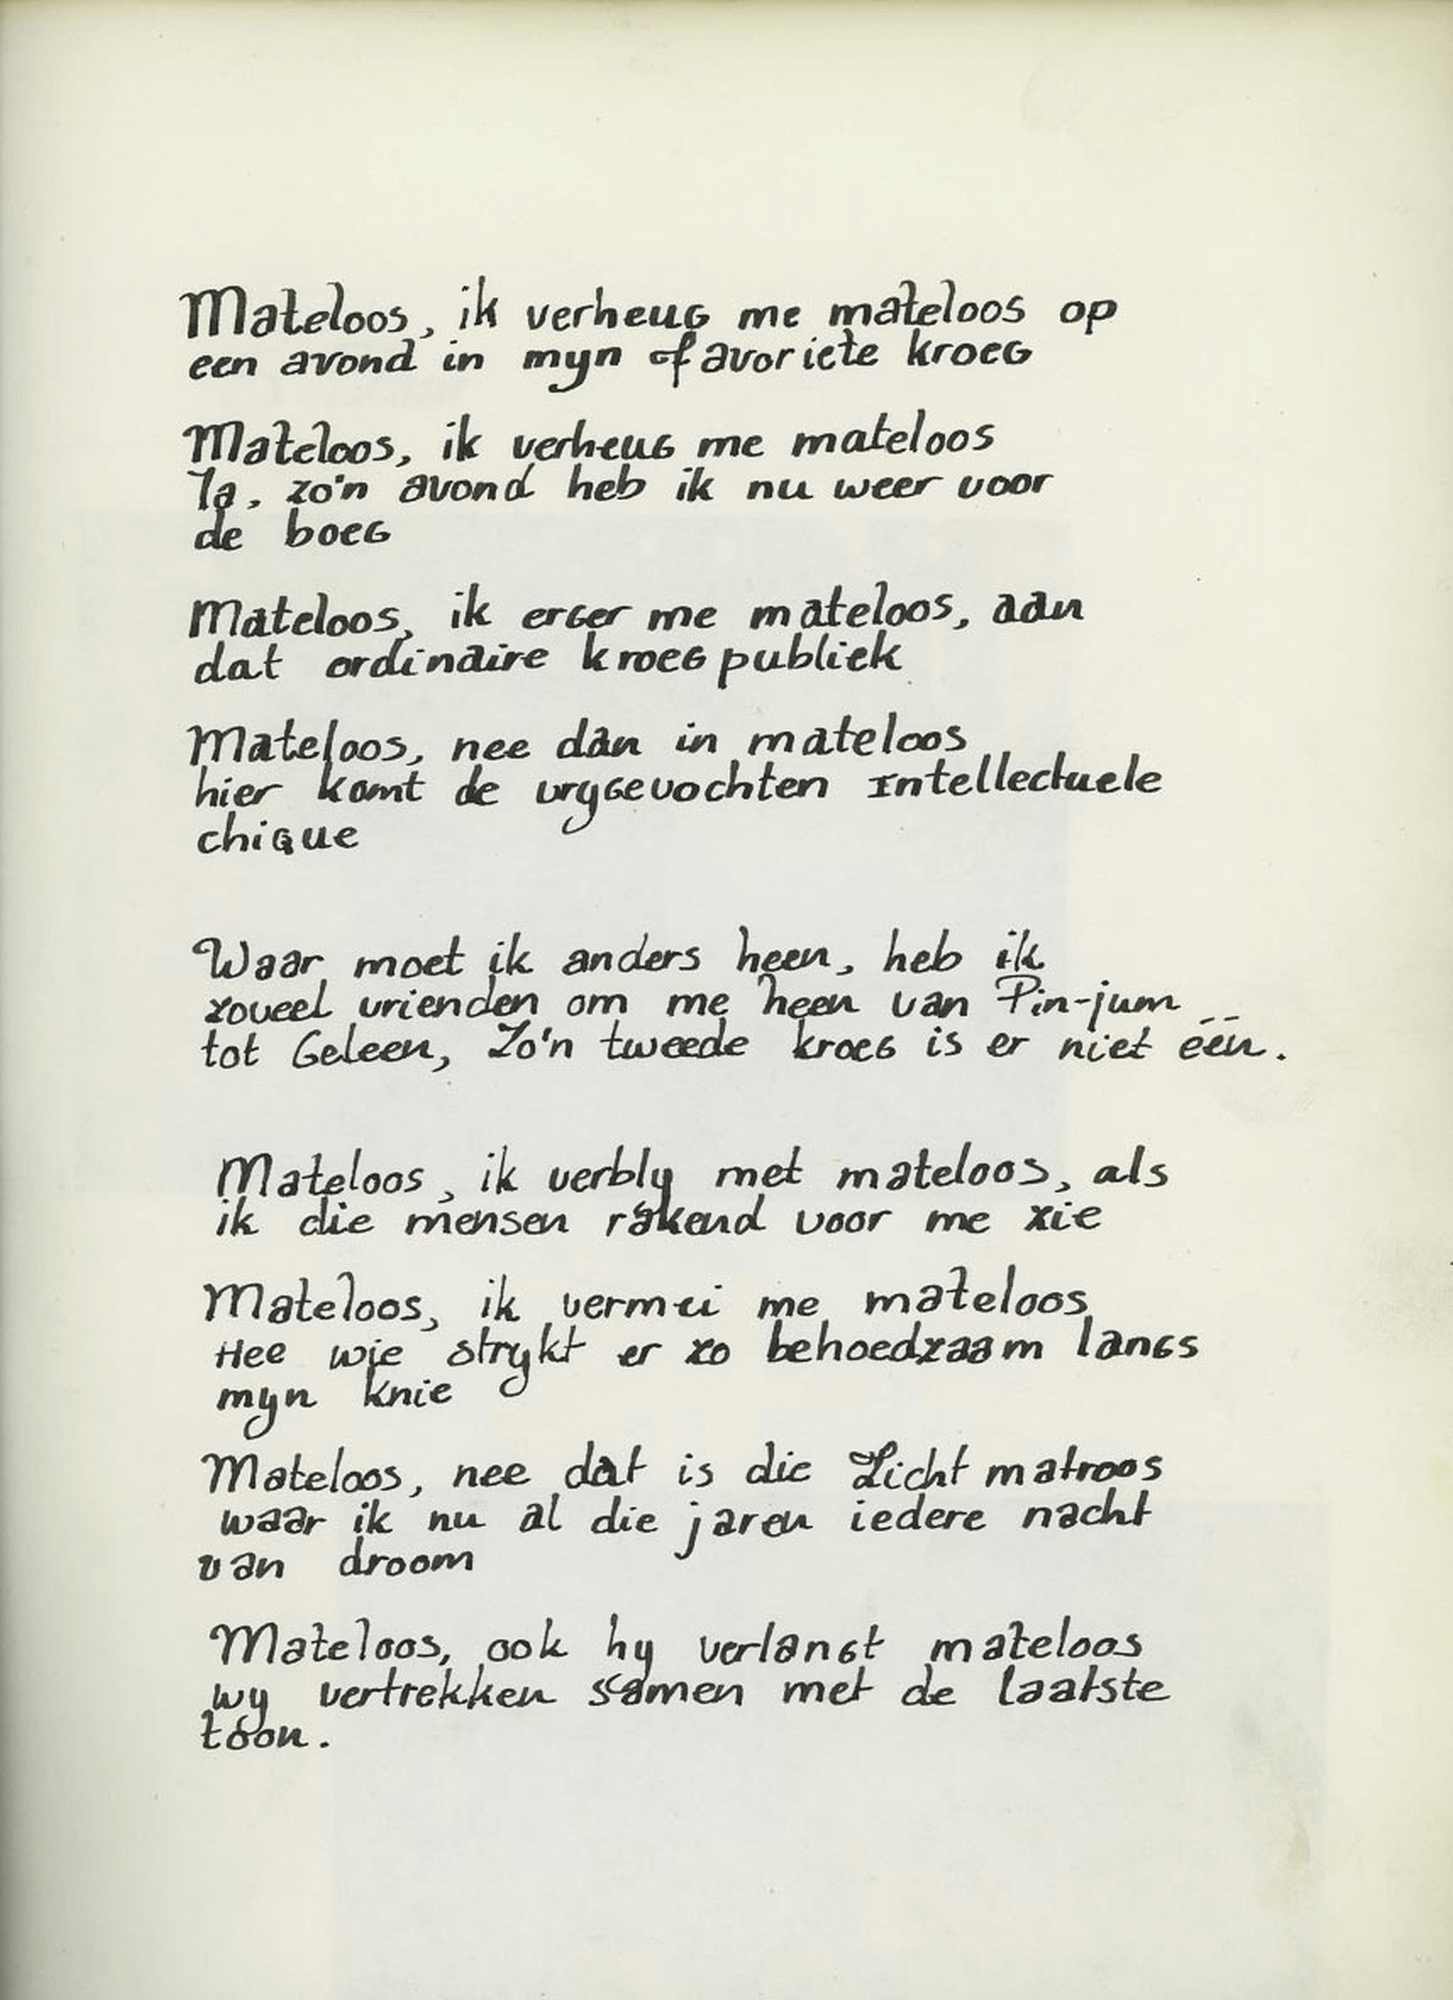 Mateloos, ik verheug me mateloos op
een avond in myn favoriete kroeg
Mateloos, ik verheug me mateloos
Ja, zo'n avond heb ik nu weer voor
de boeg
Mateloos, ik erger me mateloos, aan
dat ordinaire kroegpubliek
Mateloos, nee dan in mateloos
hier komt de vrygevochten intellectuele
chique
Waar moet ik anders heen, heb ik
zoveel vrienden om me heen van Pin-jum
tot Geleen, Zo'n tweede kroeg is er niet één.
Mateloos, ik verbly met mateloos, als
ik die mensen rakend voor me zie
Mateloos, ik vermei me mateloos
Hee wie strykt er zo behoedzaam langs
myn knie
Mateloos, nee dat is die Licht matroos
waar ik nu al die jaren iedere nacht
van droom
Mateloos, ook hy verlangt mateloos
wy vertrekken samen met de laatste
toon.